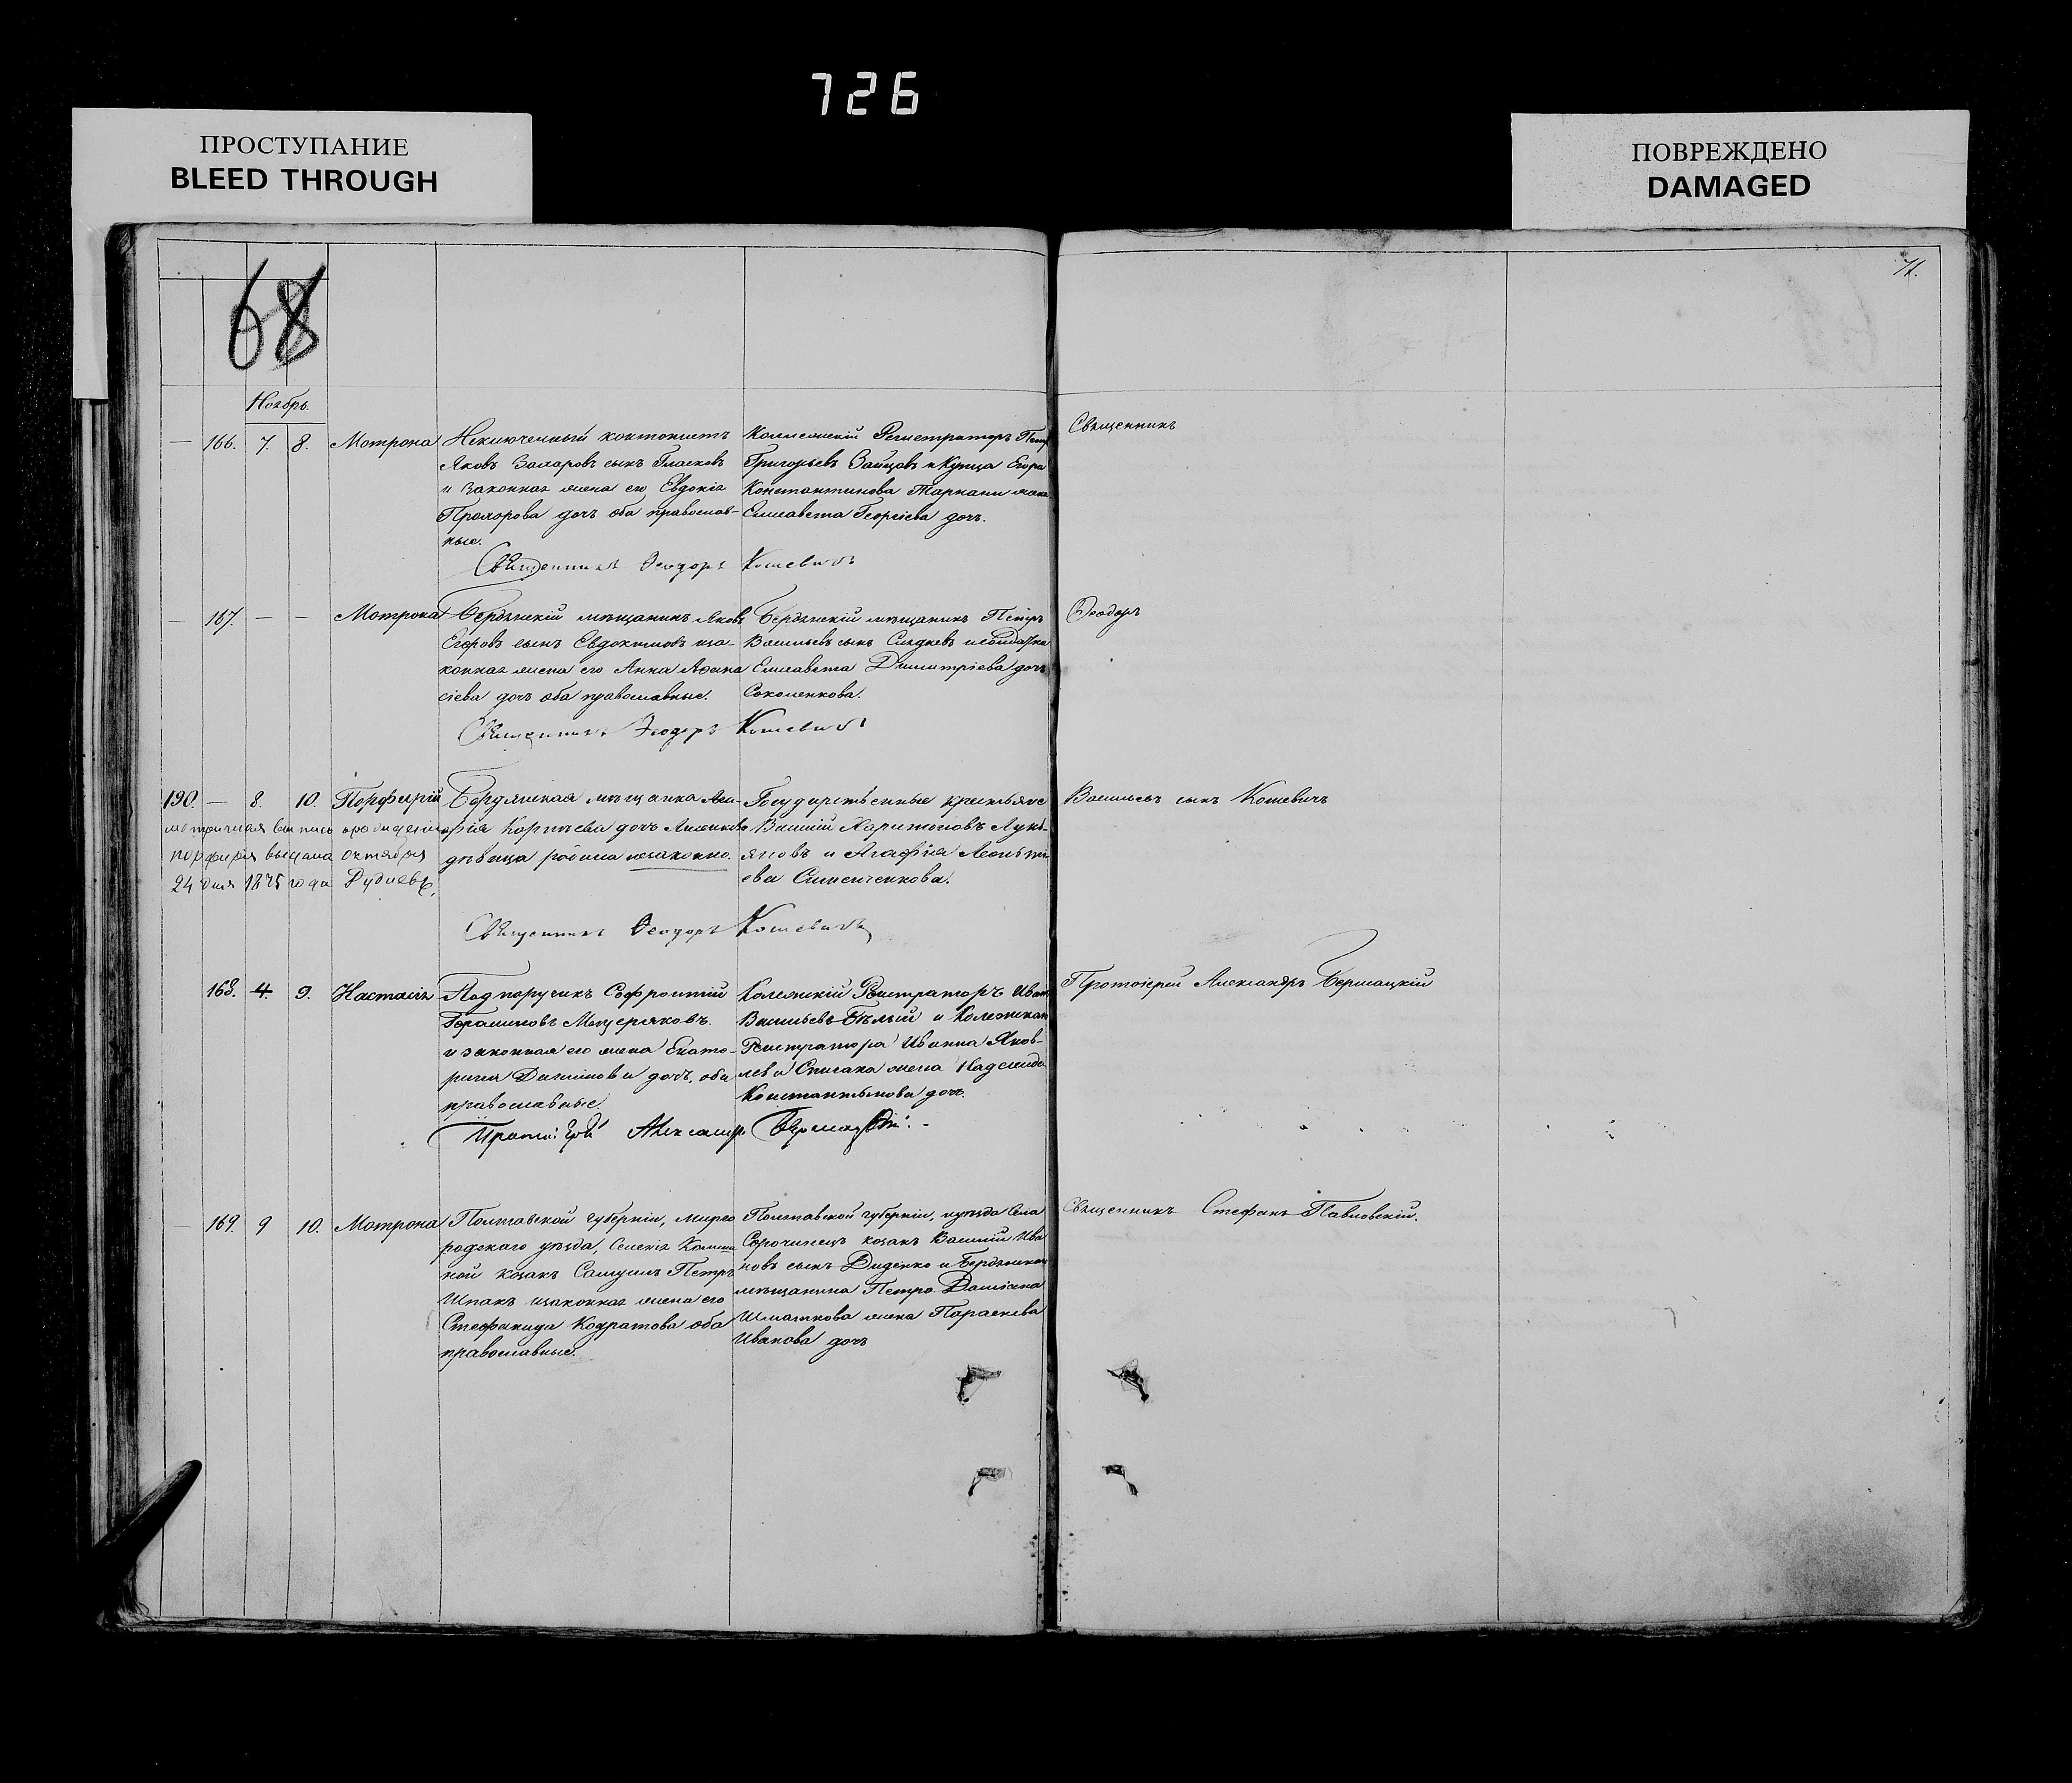 726
ПРОСТУПАНИЕ
BLEED THROUGH
ПОВРЕЖДЕНО
DAMAGED
68
71.
Ноябрь.
— 166. 7. 8. Мотрона
Исключенный кантонистъ
Яковъ Захаровъ сынъ Гласковъ
и законная жена его Евдокія
Прохорова дочь оба православ-
ные.
Коллежскій Регистраторъ Петр
Григорьевъ Зайцовъ и Купца Егора
Константинова Таркани жена
Елисавета Георгіева дочь.
Священникъ
Священникъ Ѳеодоръ Кошевичъ
— 167. — — Мотрона
Бердянскій мѣщанинъ Яковъ
Егоровъ сынъ Евдокимовъ иза-
конная жена его Анна Афана
сіева дочь оба православные.
Бердянскій мѣщанинъ Петръ
Васильевъ сынъ
Елисавета Димитріева дочь
Соколенкова.
Ѳеодоръ
Священникъ Ѳеодоръ Кошевичъ
190. — 8. 10. Порфирій
метричная выпись о рожденіи
Порфирія выдана октября
24 дня 1875 года
Бердянская мѣщанка
Корнѣева дочь
дѣвица родила незаконно.
Государственные крестьяне
Василій Харитоновъ Лукь-
яновъ и Агафія Леонті-
ева
Васильевъ сынъ Кошевичъ
Священникъ Ѳеодоръ Кошевичъ
168. 4. 9. Настасія
Подпоручикъ Софроній
Герасимовъ Мещеряковъ.
и законная его жена Екате-
рина дочь, оба
православные.
Колежскій Регистраторъ Иван
Васильевъ Бѣлый и Колежскаго
Регистратора Ивана Яков-
лева жена Надежда
Константинова дочь.
Протоіерей Александръ
Протоіерей Александръ
— 169. 9 10. Мотрона
Полтавской губерніи, мирго
родскаго уѣзда, Селенія
ной козакъ Самуилъ Петръ
Шпакъ изаконная жена его
Стефанида Кодратова оба
православные.
Полтавской губерніи, иуѣзда Села
Сорочинецъ козакъ Василій Ива
новъ сынъ Диденко и Бердянскаго
мѣщанина Петра Даміана
Шматкова жена Параскева
Иванова дочь
Священникъ Стефанъ Павловскій.